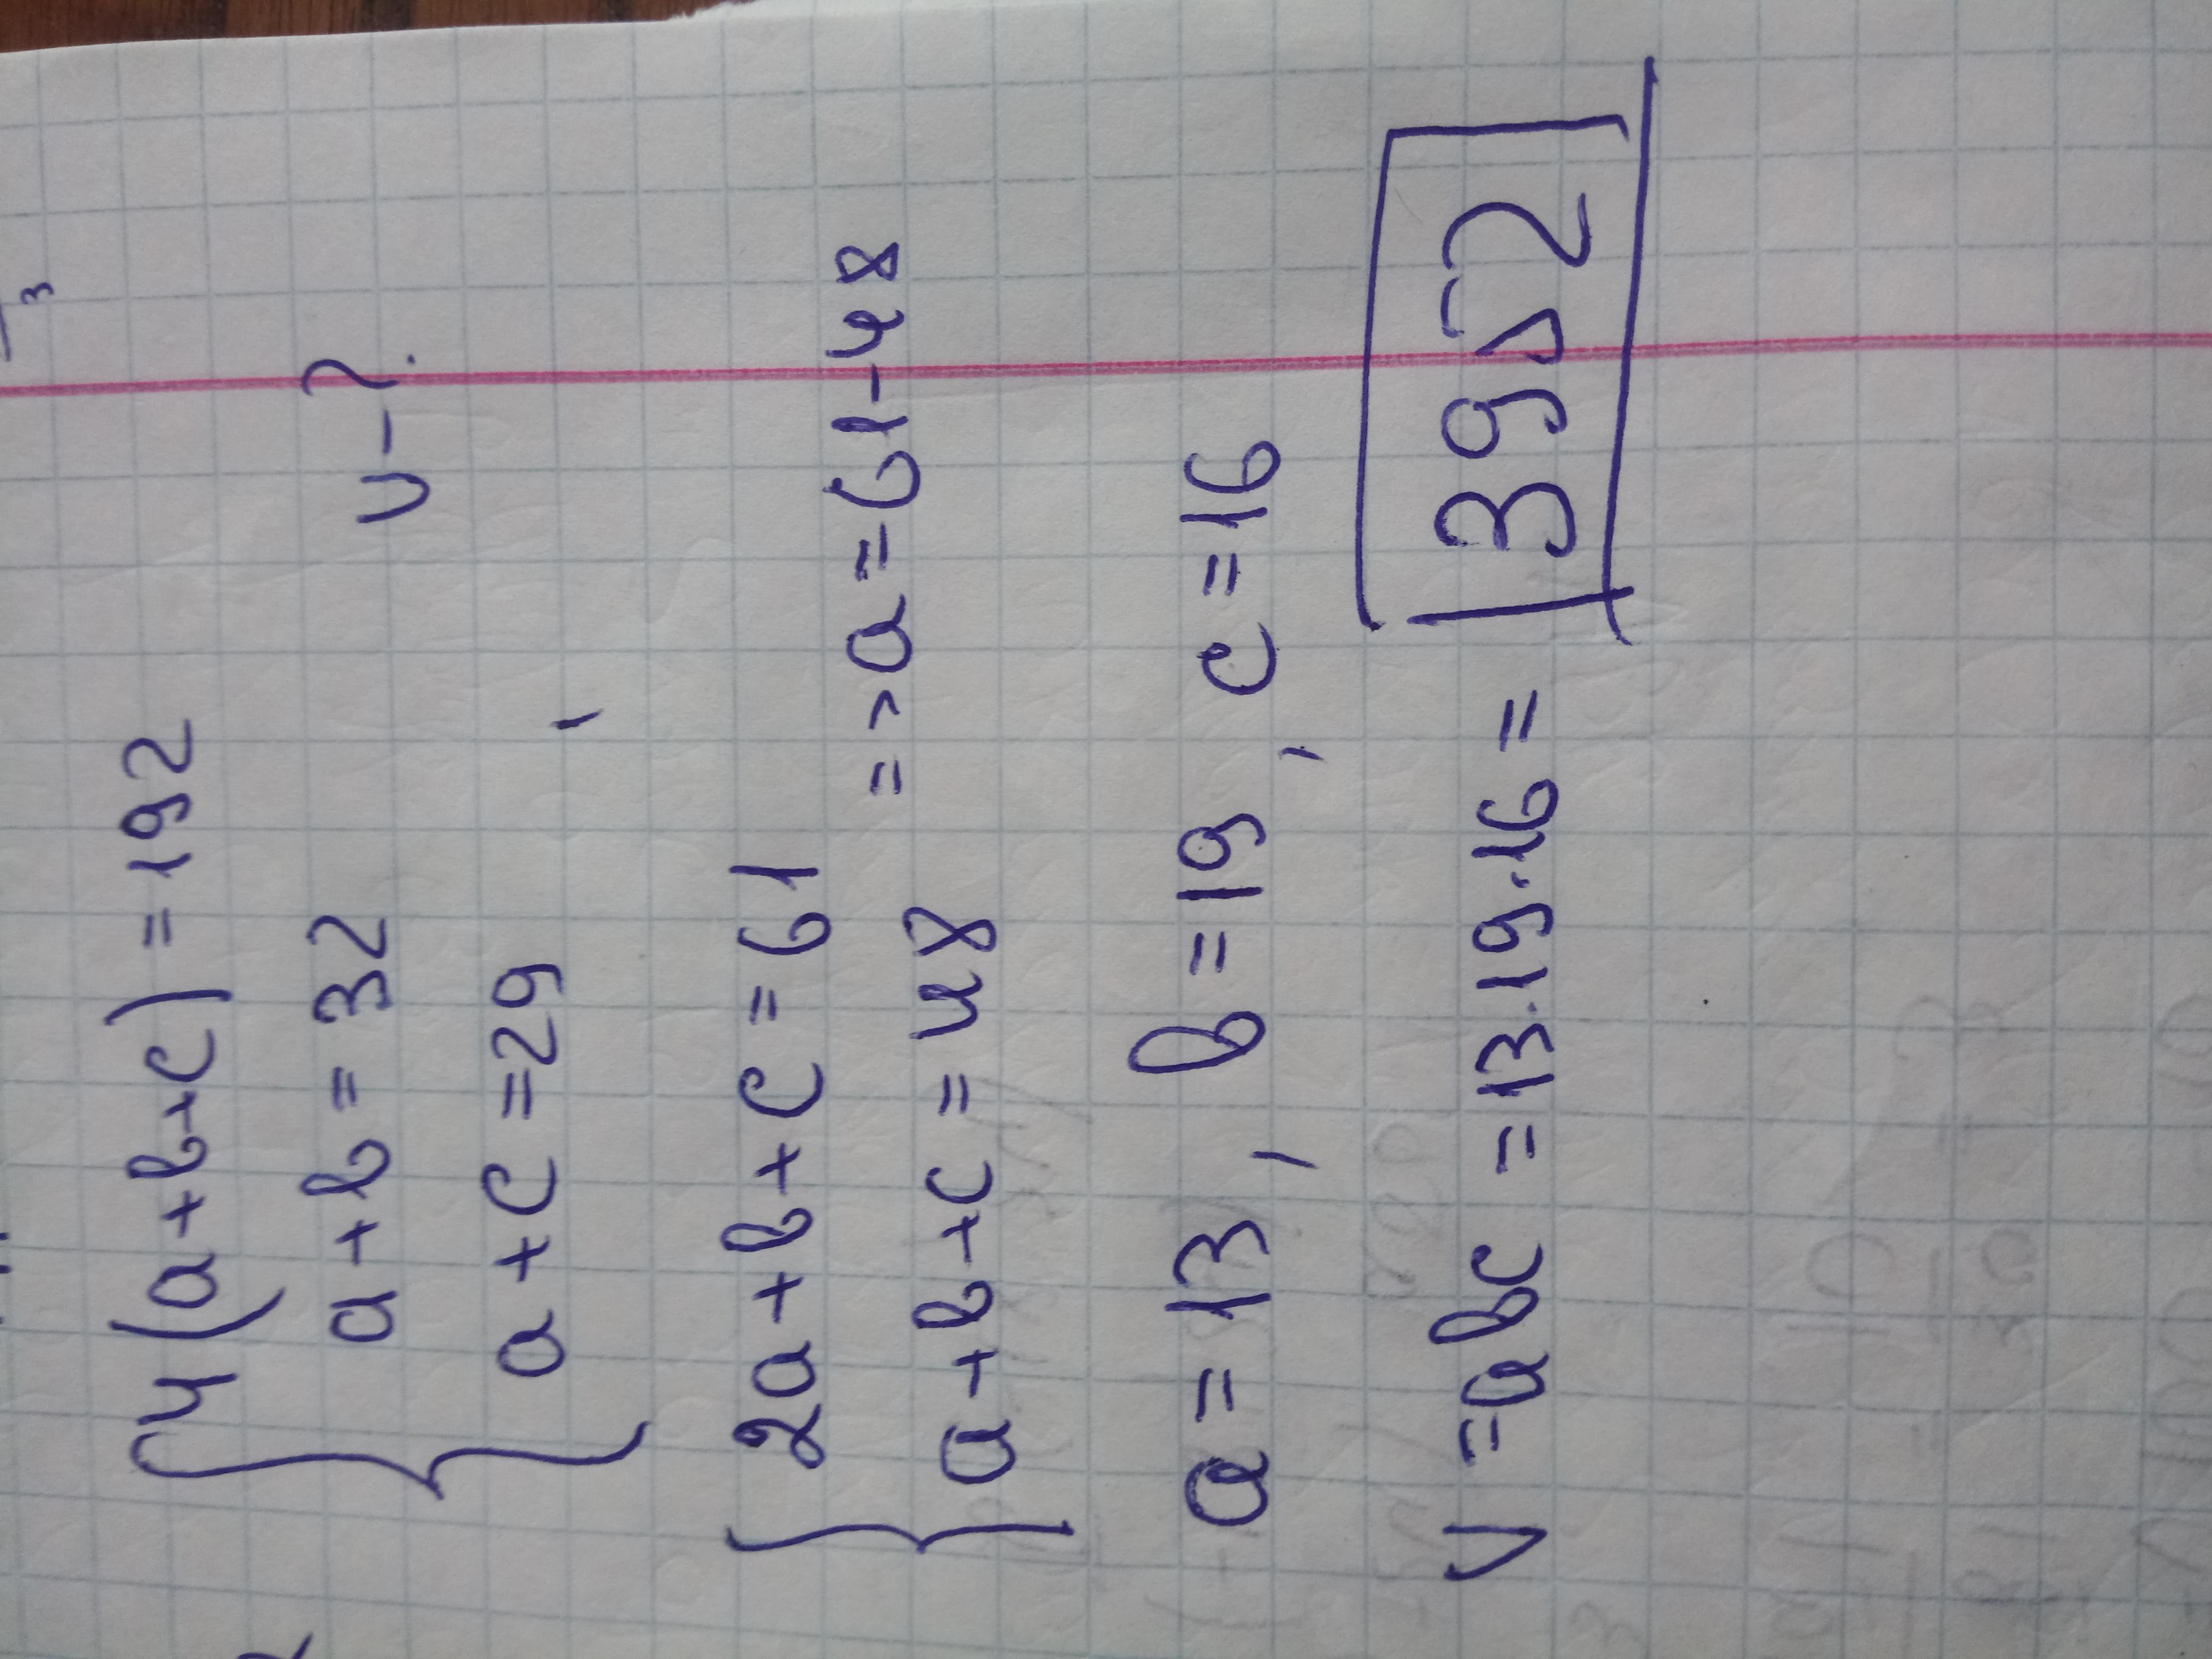 4(a+b+c) = 192
a + b = 32
v - ?
a + c = 29 ,
2a + b + c = 61
=> a = 61 - 48
a + b + c = 48
a = 13 , b = 19 , c = 16
v = abc = 13 · 19 · 16 = 3952